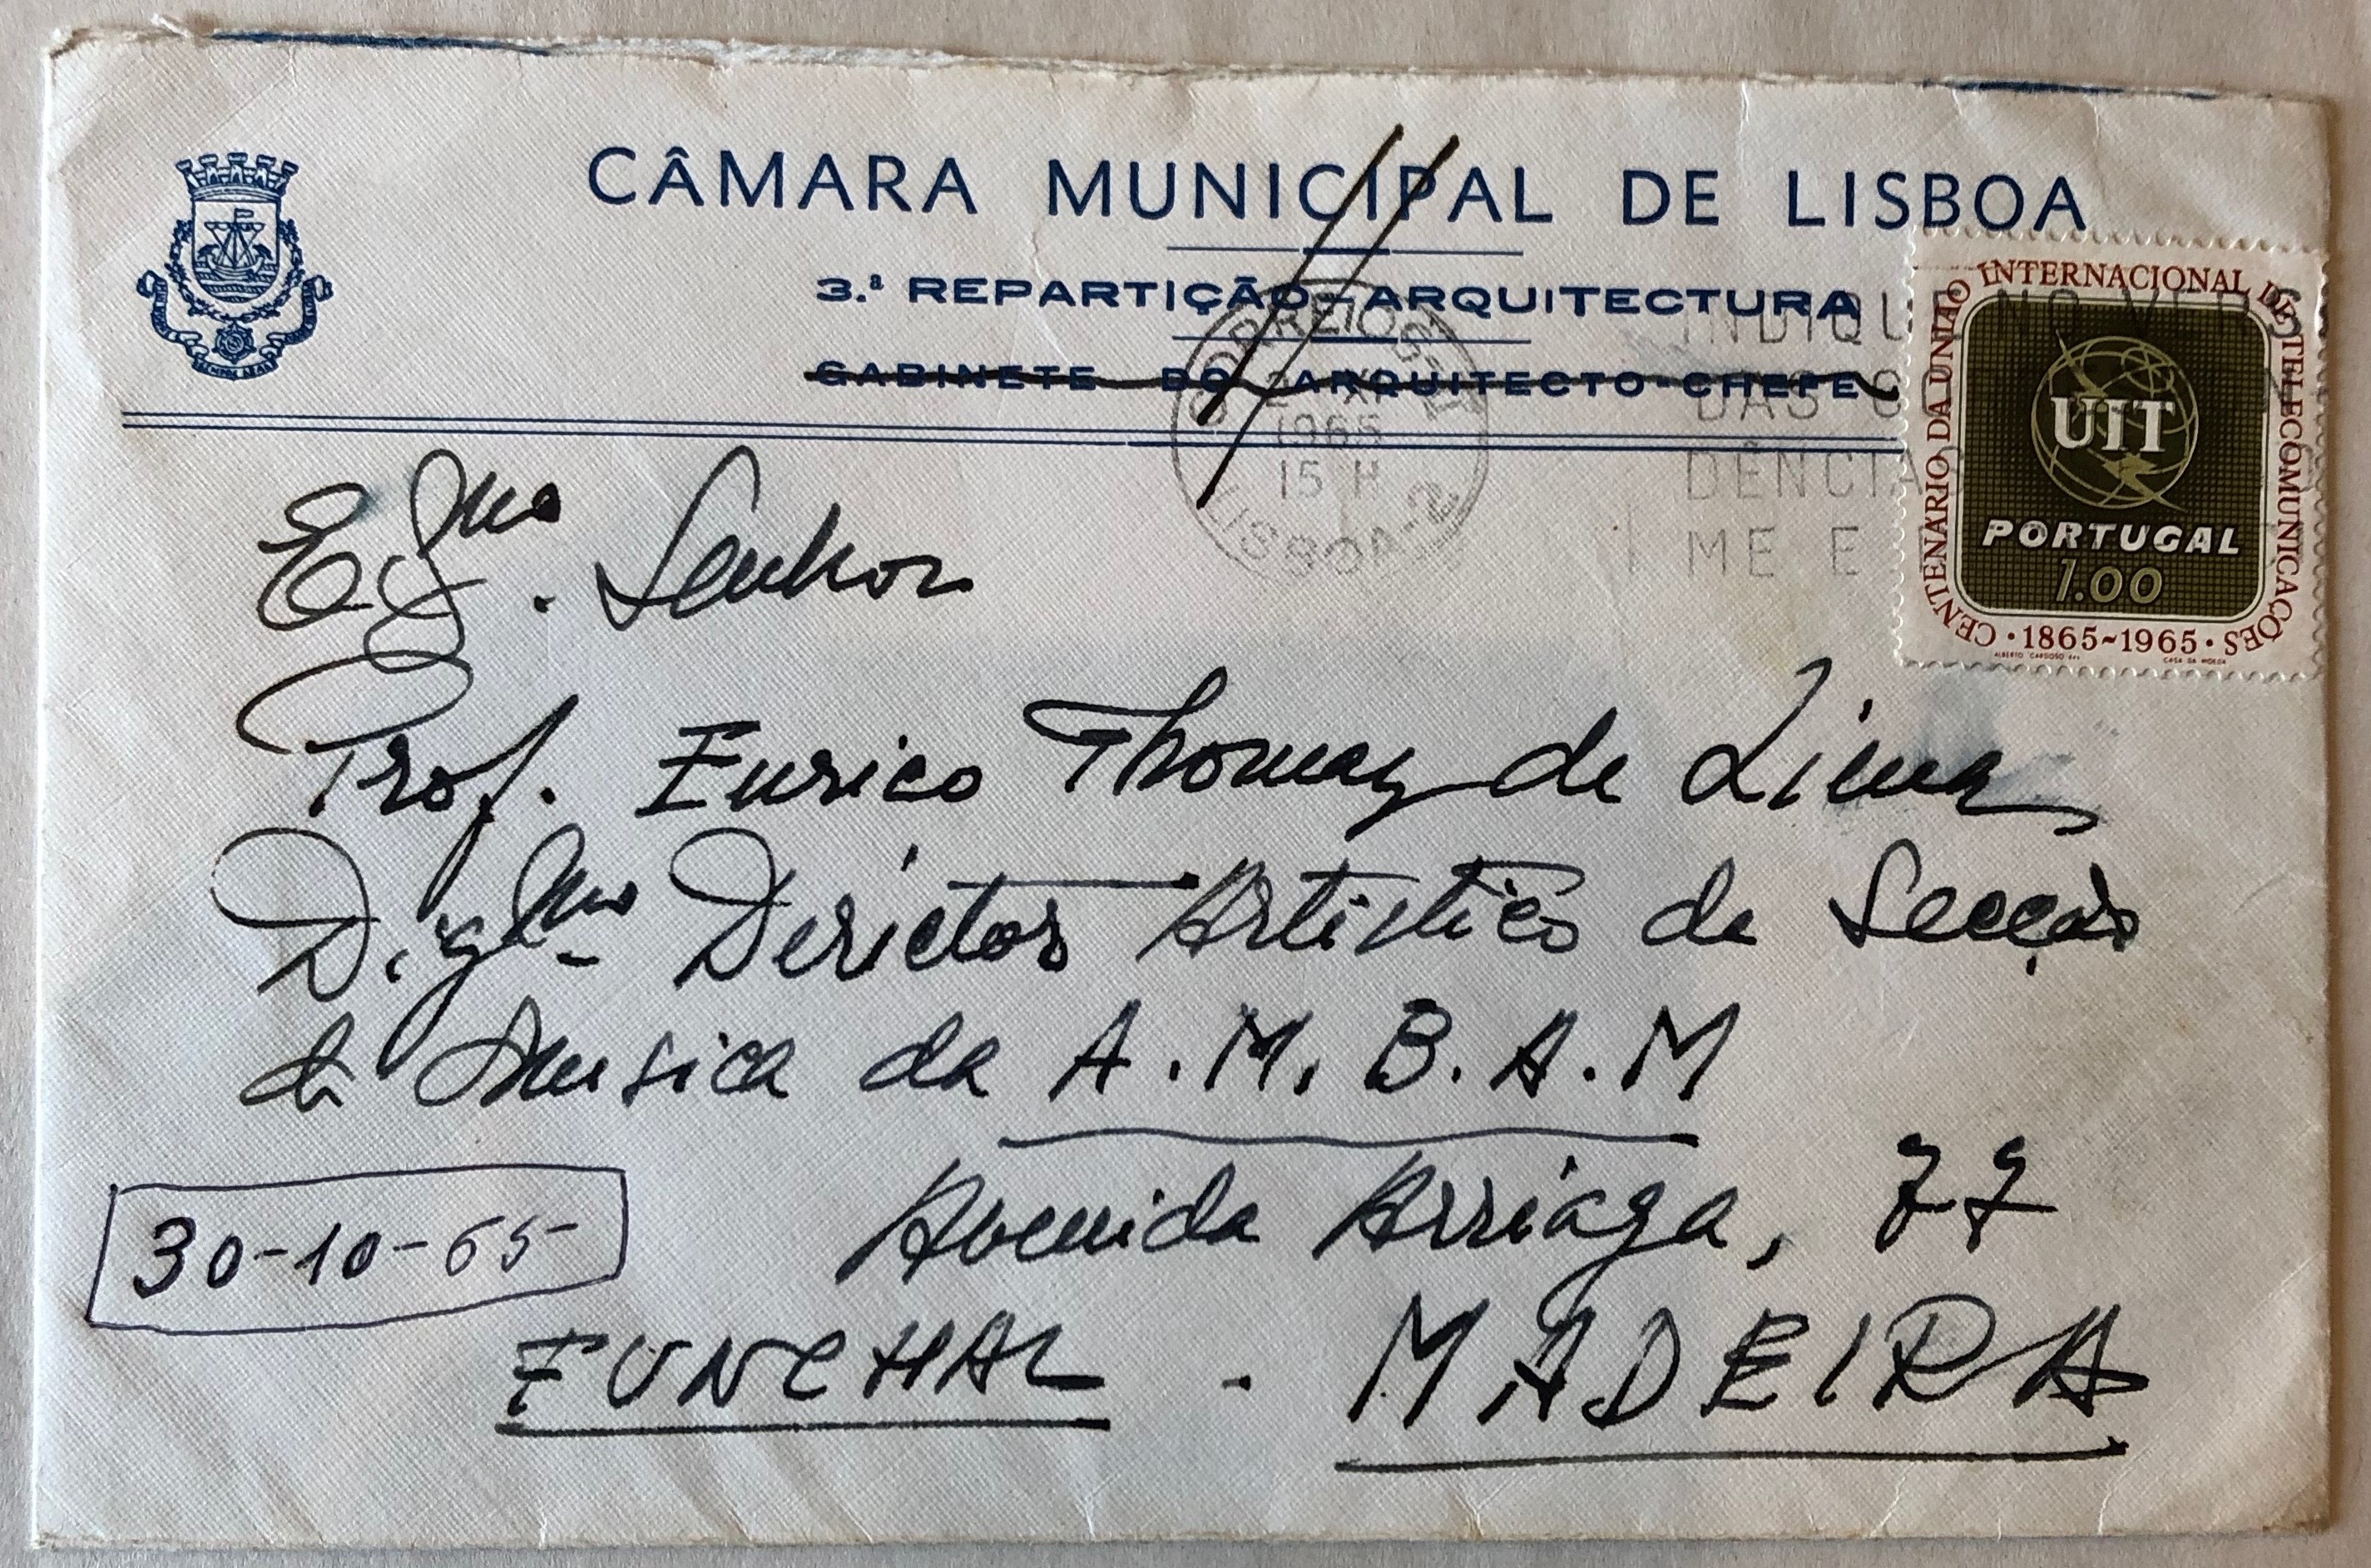 CÂMARA MUNICIPAL DE LISBOA
3.ª REPARTIÇÃO-ARQUITECTURA
GABINETE DO ARQUITECTO-CHEFE
CORREIOS
1965
15 H
LISBOA-2
INDIQUE NO VERS
DAS
DÊNCIA
ME E
CENTENÁRIO DA UNIÃO INTERNACIONAL DE TELECOMUNICAÇÕES
UIT
PORTUGAL
1.00
1865~1965
ALBERTO CARDOSO des. CASA DA MOEDA
Exmo. Senhor
Prof. Eurico Thomaz de Lima
Digmo Derictor Artistico da Secção
de Musica da A.M.B.A.M
Avenida Arriaga, 77
30-10-65
FUNCHAL - MADEIRA